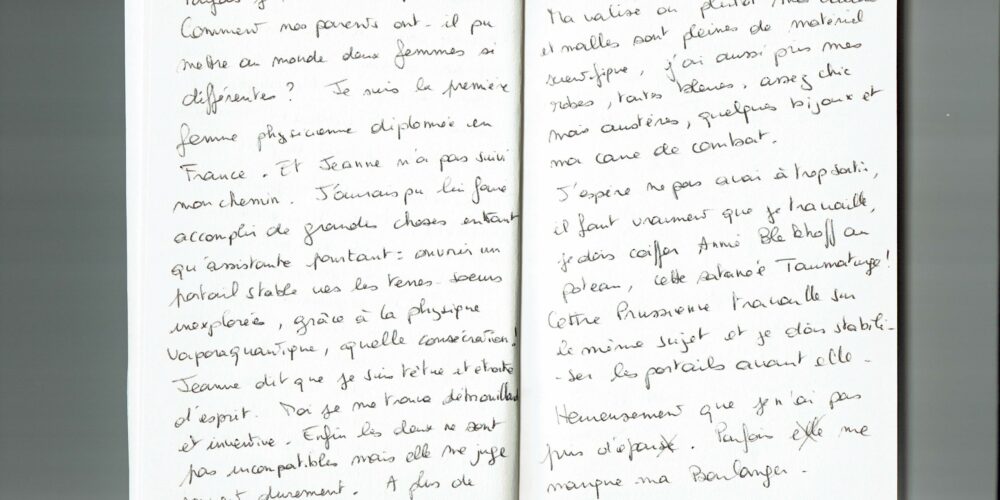 Comment mes parents ont-il pu
mettre au monde deux femmes si
différentes ? Je suis la première
femme physicienne diplomée en
France. Et Jeanne n'a pas suivi
mon chemin. J'aurais pu lui faire
accomplir de grandes choses entant
qu'assistante pourtant : ouvrir un
portail stable vers les terres-soeurs
inexplorées, grâce à la physique
vaporaquantique, quelle consécration !
Jeanne dit que je suis têtue et étroite
d'esprit. Moi je me trouve détrouillard
et inventive. Enfin les deux ne sont
pas incompatibles mais elle me juge
durement. A plus de
Ma valise ou plutôt mes
et malles sont pleines de matériel
scientifique, j'ai aussi pris mes
robes, toutes bleues, assez chic
mais austères, quelques bijoux et
ma cane de combat.
J'espère ne pas avoi à trop sortir,
il faut vraiment que je travaille,
je dois coiffer Annie au
poteau, cette satanée Taumaturge !
Cettre Prussienne travaille sur
le même sujet et je dois stabili-
-ser les portails avant elle.
Heureusement que je n'ai pas
pris d'époux. Parfois me
manque ma Boulanger.